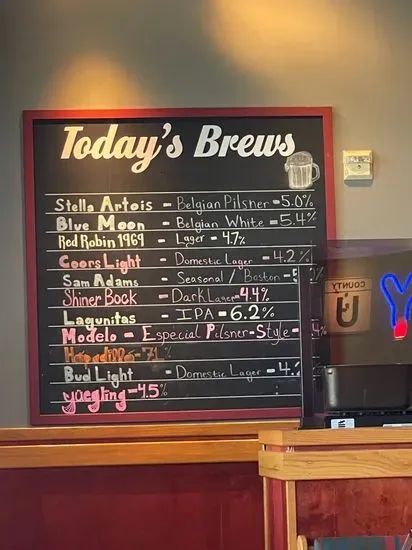 Today's Brews
Stella Artois - Belgian Pilsner - 5.0%
Blue Moon - Belgian White - 5.4%
Red Robin 1969 - Lager - 4.7%
Coors Light - Domestic Lager - 4.2%
Sam Adams - Seasonal / Boston - 5 %
Shiner Bock - Dark Lager - 4.4%
Lagunitas - IPA - 6.2%
Modelo - Especial Pilsner-Style - 4%
Bud Light - Domestic Lager - 4.2
yuegling - 4.5%
COUNTY
U
Y